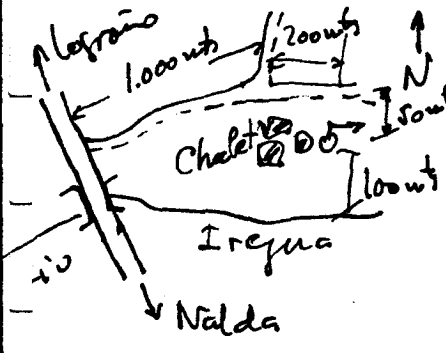 Logroño
1.000 mts
200 mts
N
50 mts
Chalet
100 mts
Iregua
río
Nalda